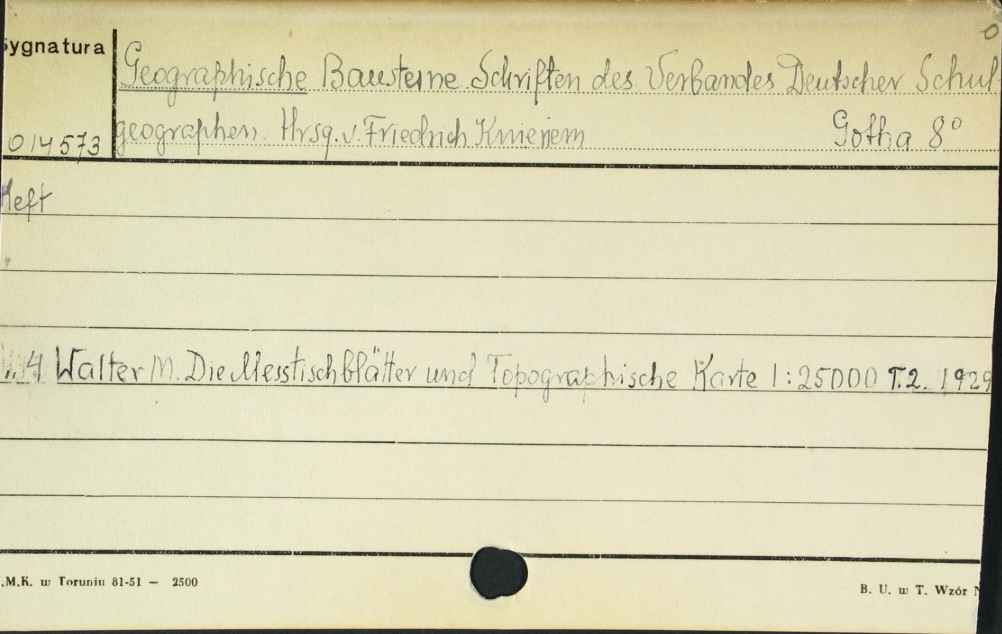 Sygnatura
Geographische Bausteine. Schriften des Verbandes Deutscher Schul
geographen. Hrsg. v. Friedrich Knieriem Gotha 8°
014573
Heft
" 4 Walter M. Die Messtischblätter und Topographische Karte 1:25000 T.2. 1929
.M.K. w Toruniu 81-51 — 2500
B. U. w T. Wzór N